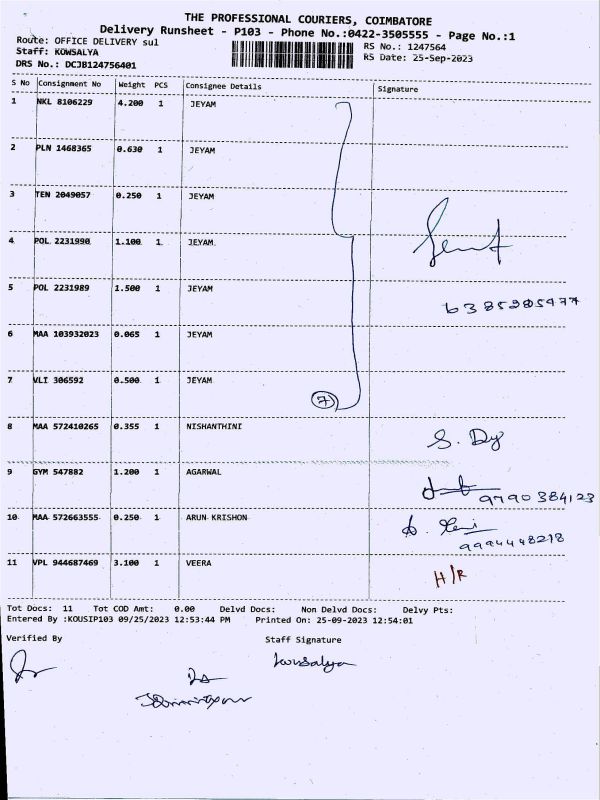 THE PROFESSIONAL COURIERS, COIMBATORE
Delivery Runsheet - P103 - Phone No.:0422-3505555 - Page No.:1
Route: OFFICE DELIVERY sul
RS No.: 1247564
Staff: KOWSALYA
RS Date: 25-Sep-2023
DRS No.: DCJB124756401
S No Consignment No Weight PCS Consignee Details Signature
1 NKL 8106229 4.200 1 JEYAM
2 PLN 1468365 0.630 1 JEYAM
3 TEN 2049057 0.250 1 JEYAM
4 POL 2231990 1.100 1 JEYAM
5 POL 2231989 1.500 1 JEYAM
6385285977
6 MAA 103932023 0.065 1 JEYAM
7 VLI 306592 0.500 1 JEYAM
7
8 MAA 572410265 0.355 1 NISHANTHINI
9 GYM 547882 1.200 1 AGARWAL
9790384123
10 MAA 572663555 0.250 1 ARUN KRISHON
9994448218
11 VPL 944687469 3.100 1 VEERA
H/R
Tot Docs: 11 Tot COD Amt: 0.00 Delvd Docs: Non Delvd Docs: Delvy Pts:
Entered By :KOUSIP103 09/25/2023 12:53:44 PM Printed On: 25-09-2023 12:54:01
Verified By Staff Signature
kowsalya